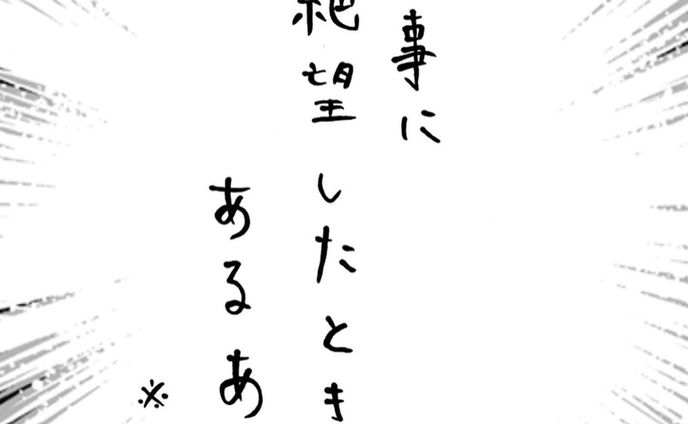 事に
絶望したとき
あるあ
※